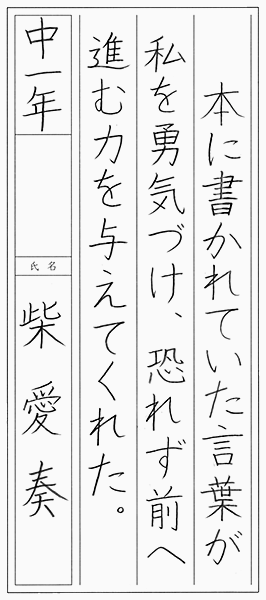 本に書かれていた言葉が
私を勇気づけ、恐れず前へ
進む力を与えてくれた。
中一年
氏名
柴愛奏